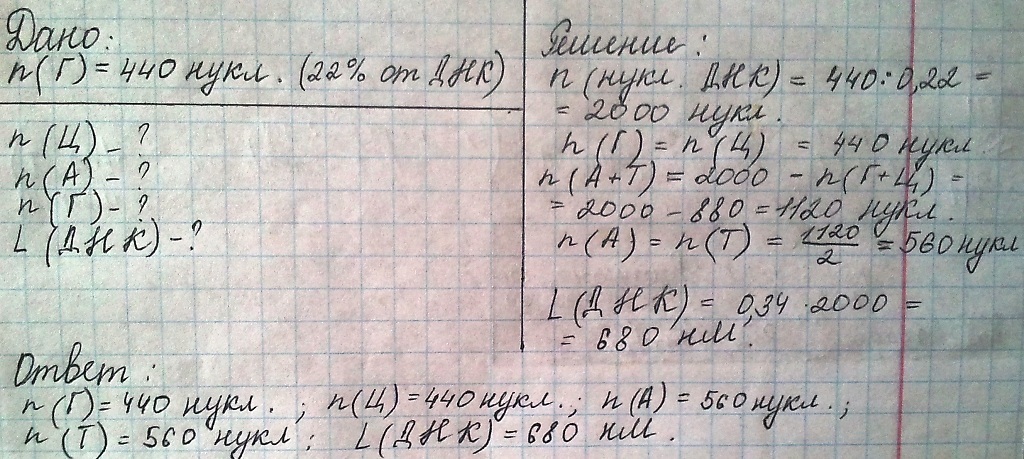 Дано:
n(Г) = 440 нукл. (22% от ДНК)
n(Ц) - ?
n(А) - ?
n(Г) - ?
L (ДНК) - ?
Решение:
n (нукл. ДНК) = 440 : 0,22 =
= 2000 нукл.
n(Г) = n(Ц) = 440 нукл.
n(А+Т) = 2000 - n(Г+Ц) =
= 2000 - 880 = 1120 нукл.
n(А) = n(Т) = 1120/2 = 560 нукл
L(ДНК) = 0,34 · 2000 =
= 680 нм.
Ответ:
n(Г) = 440 нукл. ; n(Ц) = 440 нукл. ; n(А) = 560 нукл. ;
n(Т) = 560 нукл ; L(ДНК) = 680 нм.